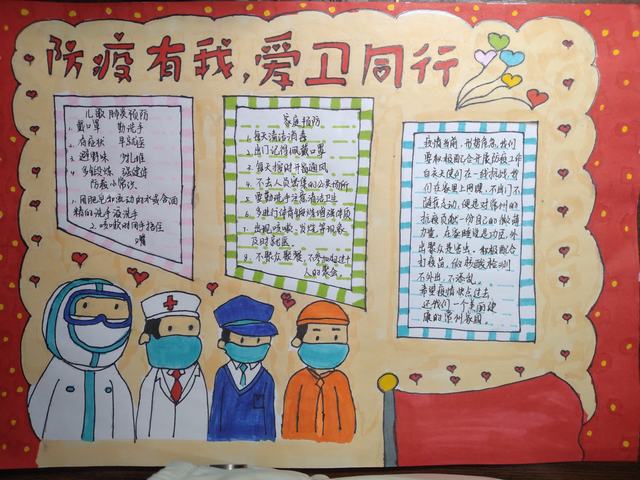 防疫有我，爱卫同行
儿童肺炎预防
1. 戴口罩 勤洗手
2. 有症状 早就医
3. 避野味 少扎堆
4. 多锻炼 强健体
防疫小常识
1. 用肥皂和流动的水或含酒
精的洗手液洗手
2. 咳嗽时用手捂住
嘴
家庭预防
1. 每天清洁消毒
2. 出门记得佩戴口罩
3. 每天按时开窗通风
4. 不去人员密集的公共场所
5. 要勤洗手注意清洁卫生
6. 多进行体育锻炼增强体质
7. 出现咳嗽、发烧等现象
及时就医
8. 不聚众聚餐，不参加超过十
人的聚会。
疫情当前，形势危急，我们
要积极配合开展防疫工作
白衣天使们在一线抗战，我
们在家里上网课，不出门不
随意走动，便是对常州的
抗疫贡献一份自己的微薄
力量，在家睡觉是功臣，外
出聚众是害虫，积极配合
打疫苗，做好核酸检测
不外出，不添乱。
希望疫情快点过去
还我们一个美丽健
康的常州家园